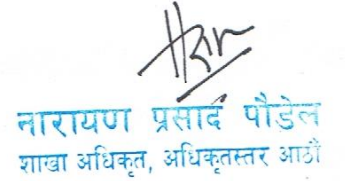 नारायण प्रसाद पौडेल
शाखा अधिकृत, अधिकृतस्तर आठौ